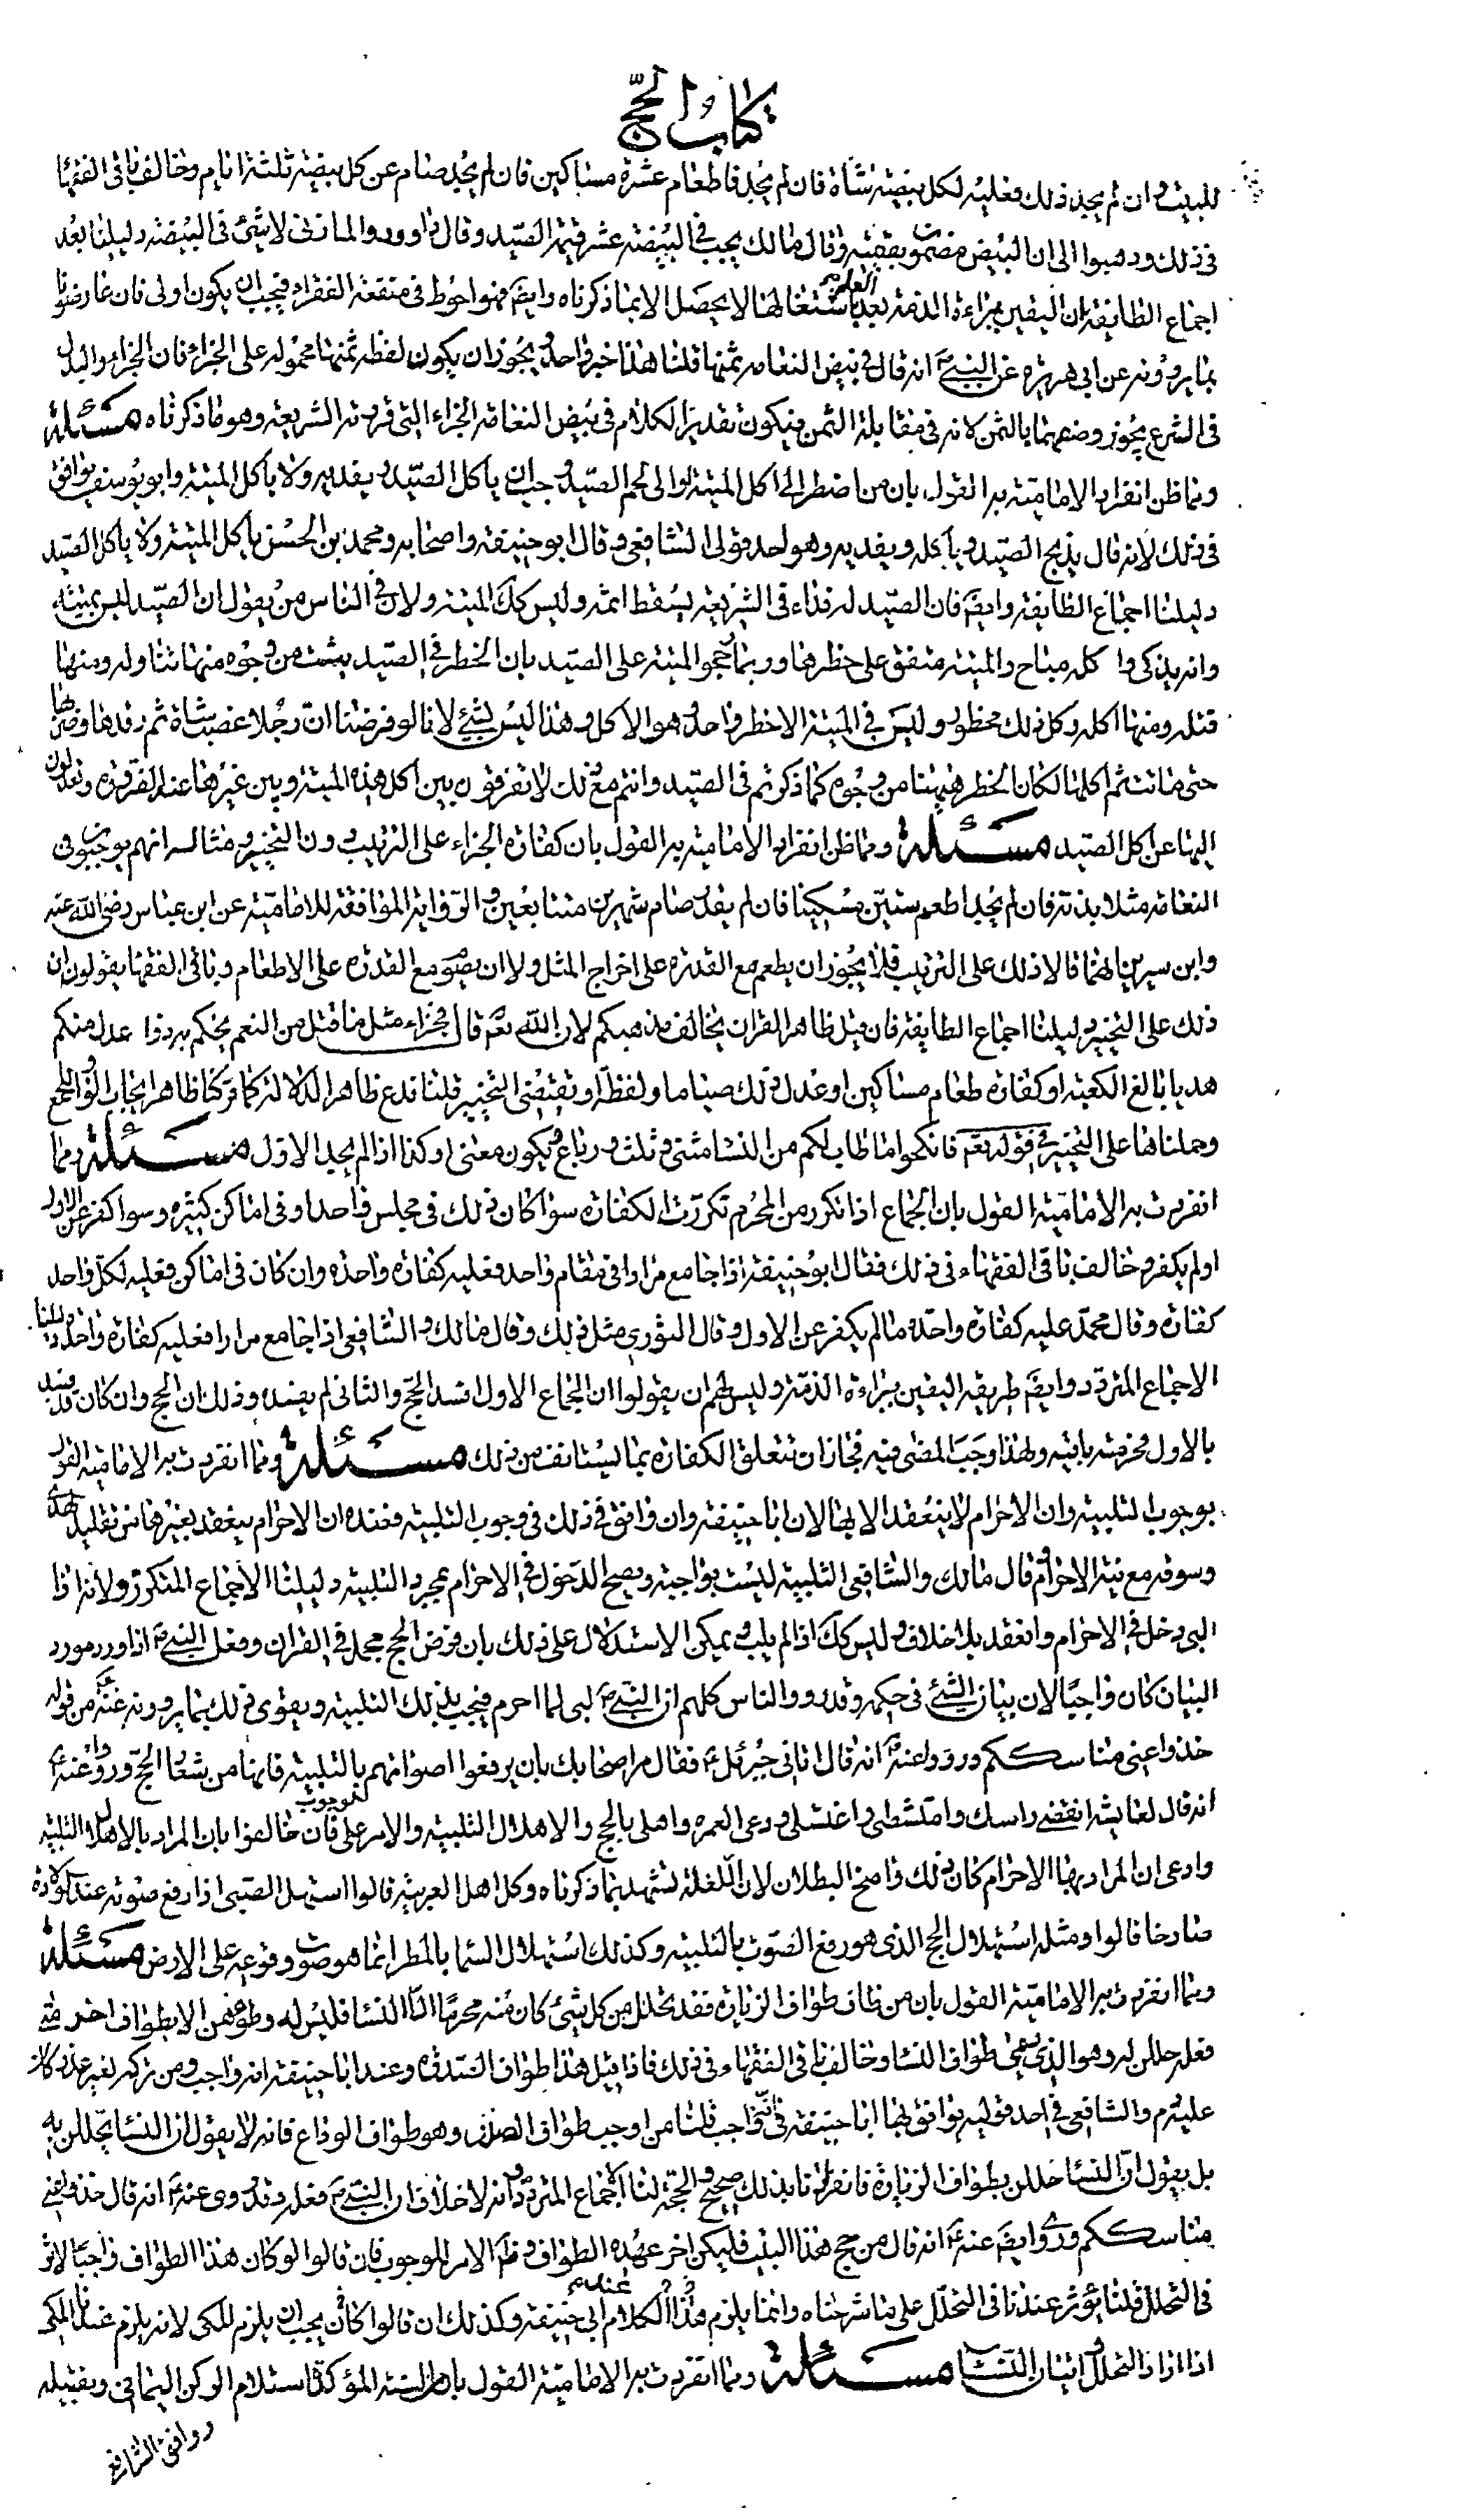 كتاب الحج
للبيت وان لم يجد ذلك فعليه لكل بيضة شاة فان لم يجد فاطعام عشرة مساكين فان لم يجد صام عن كل بيضة ثلثة ايام وخالف باقى الفقهاء
فى ذلك وذهبوا الى ان البيض مضمون بقيمته وقال مالك يجب فى البيضة عشر قيمة الصيد وقال داوود والمازنى لا شئ فى البيضة دليلنا بعد
اجماع الطائفة ان اليقين ببراءة الذمة بعد العلم باشتغالها لا يحصل الا بما ذكرناه وايضَ فهو احوط فى منفعة الفقراء فيجب ان يكون اولى فان عارضونا
بما يروونه عن ابى هريرة عن النبى ص انه قال فى بيض النعامة ثمنها قلنا هذا خبر واحد ويجوز ان يكون لفظه ثمنها محمولة على الجزاء فان الجزاء والبدل
فى الشرع يجوز وصفهما بالثمن لانه فى مقابلة الثمن فيكون تقدير الكلام فى بيض النعامة الجزاء التى قررته الشريعة وهو ما ذكرناه مسئلة
ومما ظن انفراد الامامية به القول بان من اضطر الى اكل الميتة او الى لحم الصيد وجب ان ياكل الصيد ويفديه ولا ياكل الميتة وابو يوسف يوافق
فى ذلك لانه قال يذبح الصيد وياكله ويفديه وهو احد قولى الشافعى وقال ابو حنيفة واصحابه ومحمد بن الحسن ياكل الميتة ولا ياكل الصيد
دليلنا اجماع الطائفة وايضَ فان الصيد له فداء فى الشريعة يسقط اثمه وليس كك الميتة ولان فى الناس من يقول ان الصيد ليس بميتة
وانه يذكى واكله مباح والميتة متفق على حظرها وربما رجحوا الميتة على الصيد بان الحظر فى الصيد يثبت من وجوه منها تناوله ومنها
قتله ومنها اكله وكل ذلك محظور وليس فى الميتة الا حظر واحد وهو الاكل وهذا ليس بشئ لانا لو فرضنا ان رجلا غصب شاة ثم وقذها وضربها
حتى ماتت ثم اكلها لكان الحظر هيهنا من وجوه كما ذكرتم فى الصيد وانتم مع ذلك لا تفرقون بين اكل هذه الميتة وبين غيرها عند الضرورة وتعدلون
اليها عن اكل الصيد مسئلة ومما ظن انفراد الامامية به القول بان كفارة الجزاء على الترتيب دون التخيير ومثاله انهم يوجبون فى
النعامة مثلا بدنة فان لم يجد اطعم ستين مسكينا فان لم يقدر صام شهرين متتابعين والرواية الموافقة للامامية عن ابن عباس رضى الله عنه
وابن سيرين انهما قالا ذلك على الترتيب فلا يجوز ان يطعم مع القدرة على اخراج المثل ولا ان يصوم مع القدرة على الاطعام وباقى الفقهاء يقولون ان
ذلك على التخيير دليلنا اجماع الطائفة فان قيل ظاهر القران يخالف مذهبكم لان الله تعَم قال فجزاء مثل ما قتل من النعم يحكم به ذوا عدل منكم
هديا بالغ الكعبة او كفارة طعام مساكين او عدل ذلك صياما ولفظة او تقتضى التخيير قلنا ندع ظاهر الدلالة كما تركنا ظاهر ايجاب الواو للجمع
وحملناها على التخيير فى قوله تعَ فانكحوا ما طاب لكم من النساء مثنى وثلث ورباع ويكون معنى او كذا اذا لم يجد الاول مسئلة ومما
انفردت به الامامية القول بان الجماع اذا تكرر من المحرم تكررت الكفارة سواء كان ذلك فى مجلس واحد او فى اماكن كثيرة وسواء كفر عن الاول
او لم يكفر وخالف باقى الفقهاء فى ذلك فقال ابو حنيفة اذا جامع مرارا فى مقام واحد فعليه كفارة واحدة وان كان فى اماكن فعليه لكل واحد
كفارة وقال محمد عليه كفارة واحدة ما لم يكفر عن الاول وقال الثورى مثل ذلك وقال مالك والشافعى اذا جامع مرارا فعليه كفارة واحدة دليلنا
الاجماع المتردد وايضَ طريقة اليقين ببراءة الذمة وليس لهم ان يقولوا ان الجماع الاول افسد الحج والثانى لم يفسده وذلك ان الحج وان كان قد فسد
بالاول فحرمته باقية ولهذا وجب المضى فيه فجاز ان تتعلق الكفارة بما يستانف من ذلك مسئلة ومما انفردت به الامامية القول
بوجوب التلبية وان الاحرام لا ينعقد الا بها لان ابا حنيفة وان وافق فى ذلك فى وجوب التلبية فعنده ان الاحرام ينعقد بغيرها من تقليد الهدى
وسوقه مع نية الاحرام وقال مالك والشافعى التلبية ليست بواجبة ويصح الدخول فى الاحرام بمجرد التلبية دليلنا الاجماع المتكرر ولانه اذا
لبى دخل فى الاحرام وانعقد بلا خلاف وليس كك اذا لم يلب ويمكن الاستدلال على ذلك بان فرض الحج مجمل فى القران وفعل النبى ص اذا ورد مورد
البيان كان واجبا لان بيان الشئ فى حكمه وقد روو الناس كلهم ان النبى ص لبى لما احرم فيجب بذلك التلبية ويقوى ذلك بما يروونه عنه ع من قوله
خذوا عنى مناسككم ورووا عنه ع انه قال اتانى جبرئل ع فقال مر اصحابك بان يرفعوا اصواتهم بالتلبية فانها من شعار الحج ورووا عنه ع
انه قال لعايشة انقضى راسك وامتشطى واغتسلى ودعى العمرة واهلى بالحج والاهلال التلبية والامر على الوجوب فان خالفوا بان المراد بالاهلال التلبية
وادعى ان المراد بها الاحرام كان ذلك واضح البطلان لان اللغة تشهد بما ذكرناه وكل اهل العربية قالوا استهل الصبى اذا رفع صوته عند الولادة
صارخا قالوا ومثله استهلال الحج الذى هو رفع الصوت بالتلبية وكذلك استهلال السماء بالمطر انما هو صوت وقوعه على الارض مسئلة
ومما انفردت به الامامية القول بان من طاف طواف الزيارة فقد تحلل من كل شئ كان منه محرما الا النساء فليس له وطؤهن الا بطواف اخر متى
فعله حللن له وهو الذى يسمى طواف النساء وخالف باقى الفقهاء فى ذلك فاذا قيل هذا طواف الصدر وعند ابا حنيفة انه واجب ومن تركه لغير عذر كان
عليه دم والشافعى فى احد قوليه يوافق ابا حنيفة فى انه واجب قلنا من اوجب طواف الصدر وهو طواف الوداع فانه لا يقول ان النساء تحللن به
بل يقول ان النساء حللن بطواف الزيارة فانفرادنا بذلك صحيح والحجة لنا الاجماع المتردد وانه لا خلاف ان النبى ص فعله وقد روى عنه ع انه قال خذوا عنى
مناسككم وروى ايضَ عنه ع انه قال من حج هذا البيت فليكن اخر عهده الطواف وظَم الامر الوجوب فان قالوا لو كان هذا الطواف واجبا لاثر
فى التحلل قلنا يؤثر عندنا فى التحلل على ما شرحناه وانما يلزم هذا الكلام ابى حنيفة وكذلك ان قالوا كان يجب ان يلزم للمكى لانه يلزم عندنا المكى
اذا اراد التحلل واتيان النساء مسئلة ومما انفردت به الامامية القول بان من السنة المؤكدة استلام الركن اليمانى وتقبيله
ووافق الشافعى